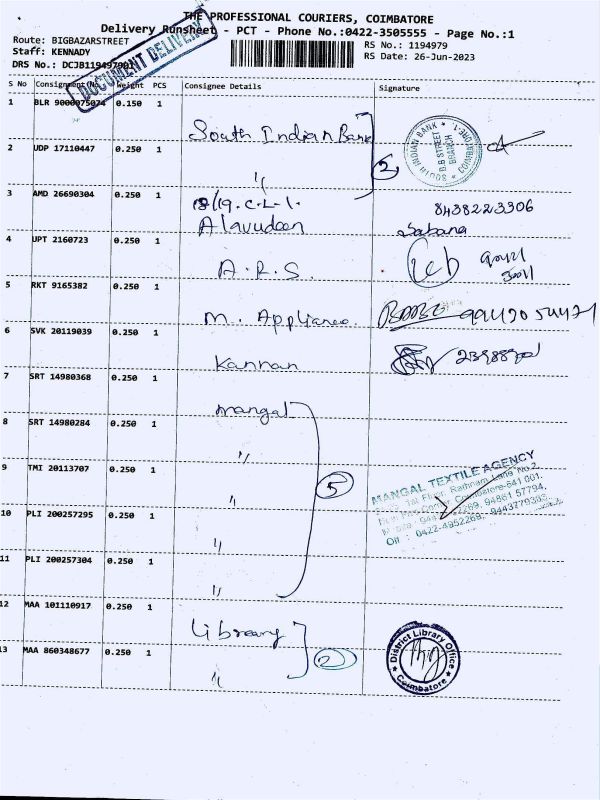 THE PROFESSIONAL COURIERS, COIMBATORE
Delivery Runsheet - PCT - Phone No.:0422-3505555 - Page No.:1
Route: BIGBAZARSTREET
RS No.: 1194979
Staff: KENNADY
RS Date: 26-Jun-2023
DRS No.: DCJB1194979001
DOCUMENT DELIVERY
S No Consignment No Weight PCS Consignee Details Signature
1 BLR 9000075074 0.150 1 South Indian Bank
2 UDP 17110447 0.250 1 〃 2
SOUTH INDIAN BANK * COIMBATORE-1 * B.B STREET BRANCH
3 AMD 26690304 0.250 1 18/19. C.L.I.
Alavudeen 8438223306
Sabana
4 UPT 2160723 0.250 1 A.R.S.
5 RKT 9165382 0.250 1 M. Appliance
6 SVK 20119039 0.250 1 Kannan
7 SRT 14980368 0.250 1 Mangal
8 SRT 14980284 0.250 1 〃
9 TMI 20113707 0.250 1 〃 5
MANGAL TEXTILE AGENCY
1st Floor, Rathnam Lane No.2,
Coimbatore-641 001.
94861 57794,
Off : 0422-4952269, 9443779383
10 PLI 200257295 0.250 1 〃
11 PLI 200257304 0.250 1 〃
12 MAA 101110917 0.250 1 Library
13 MAA 860348677 0.250 1 〃 2
District Library Office * Coimbatore *